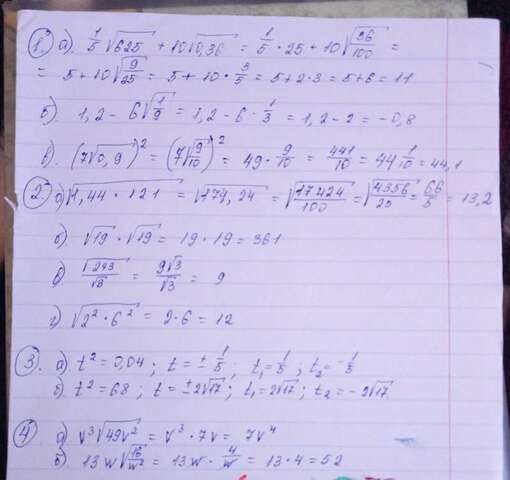 1. а). 1/5 √625 + 10√0,36 = 1/5 · 25 + 10√(36/100) =
= 5 + 10√(9/25) = 5 + 10 · 3/5 = 5 + 2·3 = 5+6 = 11
б). 1,2 - 6√(1/9) = 1,2 - 6 · 1/3 = 1,2 - 2 = -0,8
в). (7√0,9)² = (7√(9/10))² = 49 · 9/10 = 441/10 = 44 1/10 = 44,1
2. а) √(1,44 · 121) = √174,24 = √(17424/100) = √(4356/25) = 66/5 = 13,2
б). √19 · √19 = 19 · 19 = 361
в) √243/√3 = 9√3/√3 = 9
г) √(2² · 6²) = 2·6 = 12
3. а) t² = 0,04 ; t = ± 1/5 ; t₁ = 1/5 ; t₂ = - 1/5
б) t² = 68 ; t = ±2√17 ; t₁ = 2√17 ; t₂ = -2√17
4 а) v³√(49v²) = v³ · 7v = 7v⁴
б). 13w√(16/w²) = 13w · 4/w = 13·4 = 52